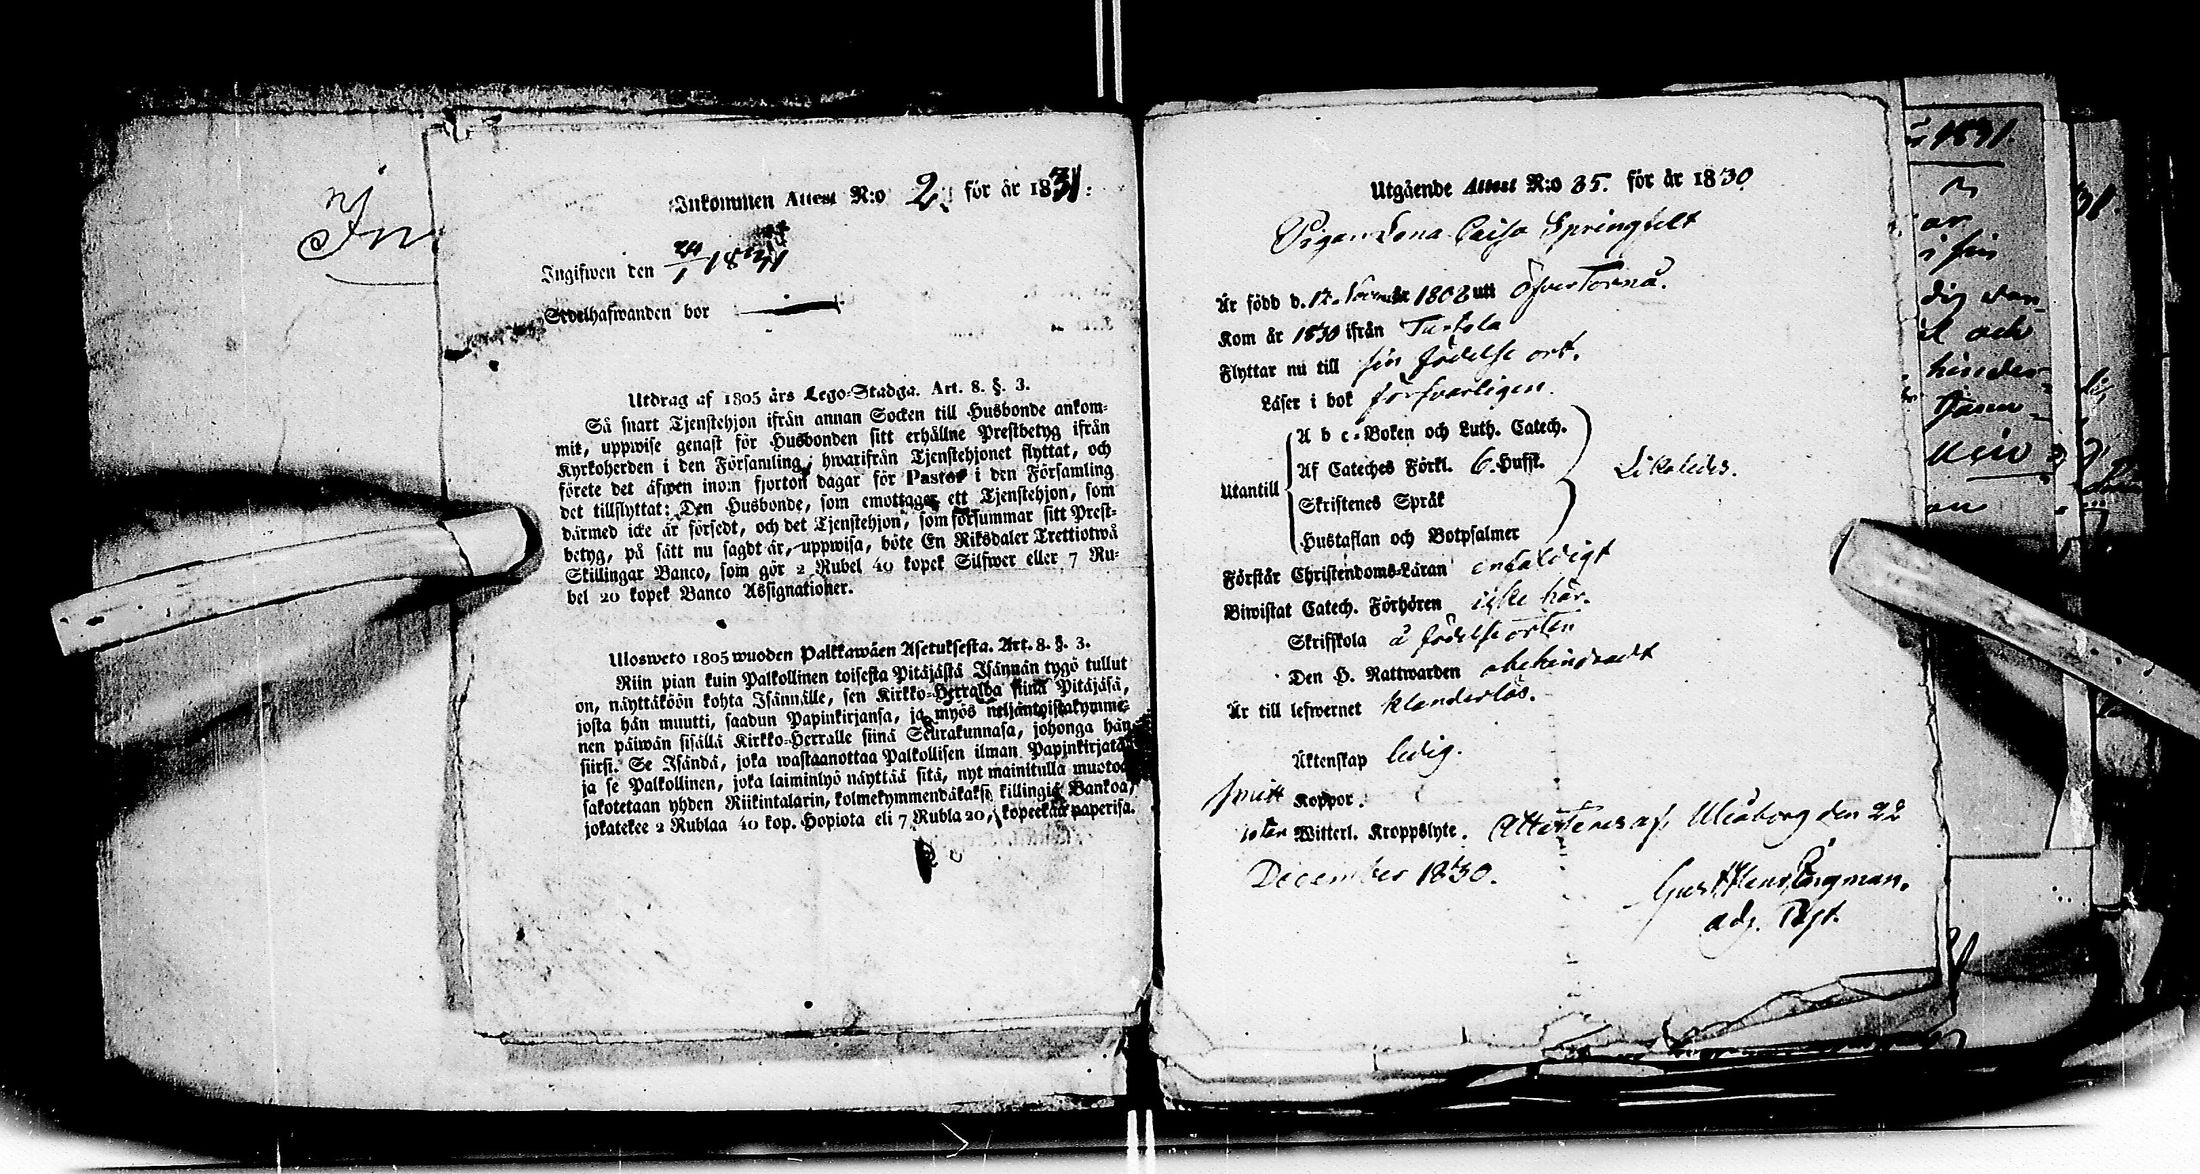 Inkommen Attest N:o 2 för år 1831:
Ingifwen den 24/1 1831
Sedelhafwanden bor
Utdrag af 1805 års Lego-Stadga. Art. 8. §. 3.
Så snart Tjenstehjon ifrån annan Socken till Husbonde ankom-
mit, uppwise genast för Husbonden sitt erhållne Prestbetyg ifrån
Kyrkoherden i den Församling, hwarifrån Tjenstehjonet flyttat, och
förete det äfwen inom fjorton dagar för Pastor i den Församling
det tillflyttat: Den Husbonde, som emottager ett Tjenstehjon, som
därmed icke är försedt, och det Tjenstehjon, som försummar sitt Prest-
betyg, på sätt nu sagdt är, uppwisa, böte En Riksdaler Trettiotwå
Skillingar Banco, som gör 2 Rubel 40 kopek Silfwer eller 7 Ru-
bel 20 kopek Banco Assignationer.
Ulosweto 1805 wuoden Palkkawäen Asetuksesta. Art. 8. §. 3.
Niin pian kuin Palkollinen toisesta Pitäjästä Isännän tygö tullut
on, näyttäköön kohta Isännälle, sen Kirkko-Herralda siinä Pitäjäsä,
josta hän muutti, saadun Papinkirjansa, ja myös neljäntoistakymme-
nen päiwän sisällä Kirkko-Herralle siinä Seurakunnasa, johonga hän
siirsi. Se Isändä, joka wastaanottaa Palkollisen ilman Papinkirjata
ja se Palkollinen, joka laiminlyö näyttää sitä, nyt mainitulla muotoa
sakotetaan yhden Riikintalarin, kolmekymmendäkaksi killingiä Bankoa,
jokatekee 2 Rublaa 40 kop. Hopiota eli 7 Rubla 20, kopeekaa paperisa.
Utgående Attest N:o 35. för år 1830
Pigan Lena Caisa Springfelt
Är född d. 12. 1808 utt Öfver Torneå.
Kom år 1830 ifrån
Flyttar nu till sin födelse ort.
Läser i bok försvarligen.
Utantill
A b c-Boken och Luth. Catech.
Af Cateches Förkl. 6. Hufst.
Skriftenes Språk
Hustaflan och Botpsalmer
Likaledes.
Förstår Christendoms-Läran enfaldigt
Biwistat Catech. Förhören icke här.
Skriftskola å födelse orten
Den H. Nattwarden obehindradt
Är till lefwernet klanderlös.
Äktenskap ledig.
haft Koppor.
utan Witterl. Kroppslyte. Attesteras af, Uleåborg den 22
December 1830.
Gust. Henr. Bergman.
adj. Past.
1831.
och
hinder